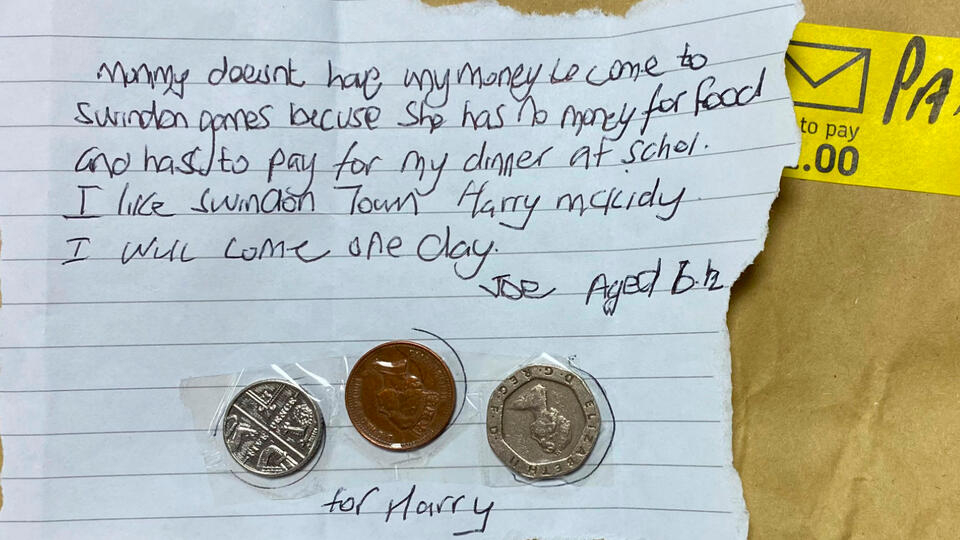 Mummy doesnt have any money to come to
Swindon games becuse she has no money for food
and hass to pay for my dinner at schol.
I like Swindon Town Harry mckidy.
I will come one day.
Joe Aged 6.½
for Harry
to pay
.00
PA
ELIZABETH II D·G·REG·F·D·